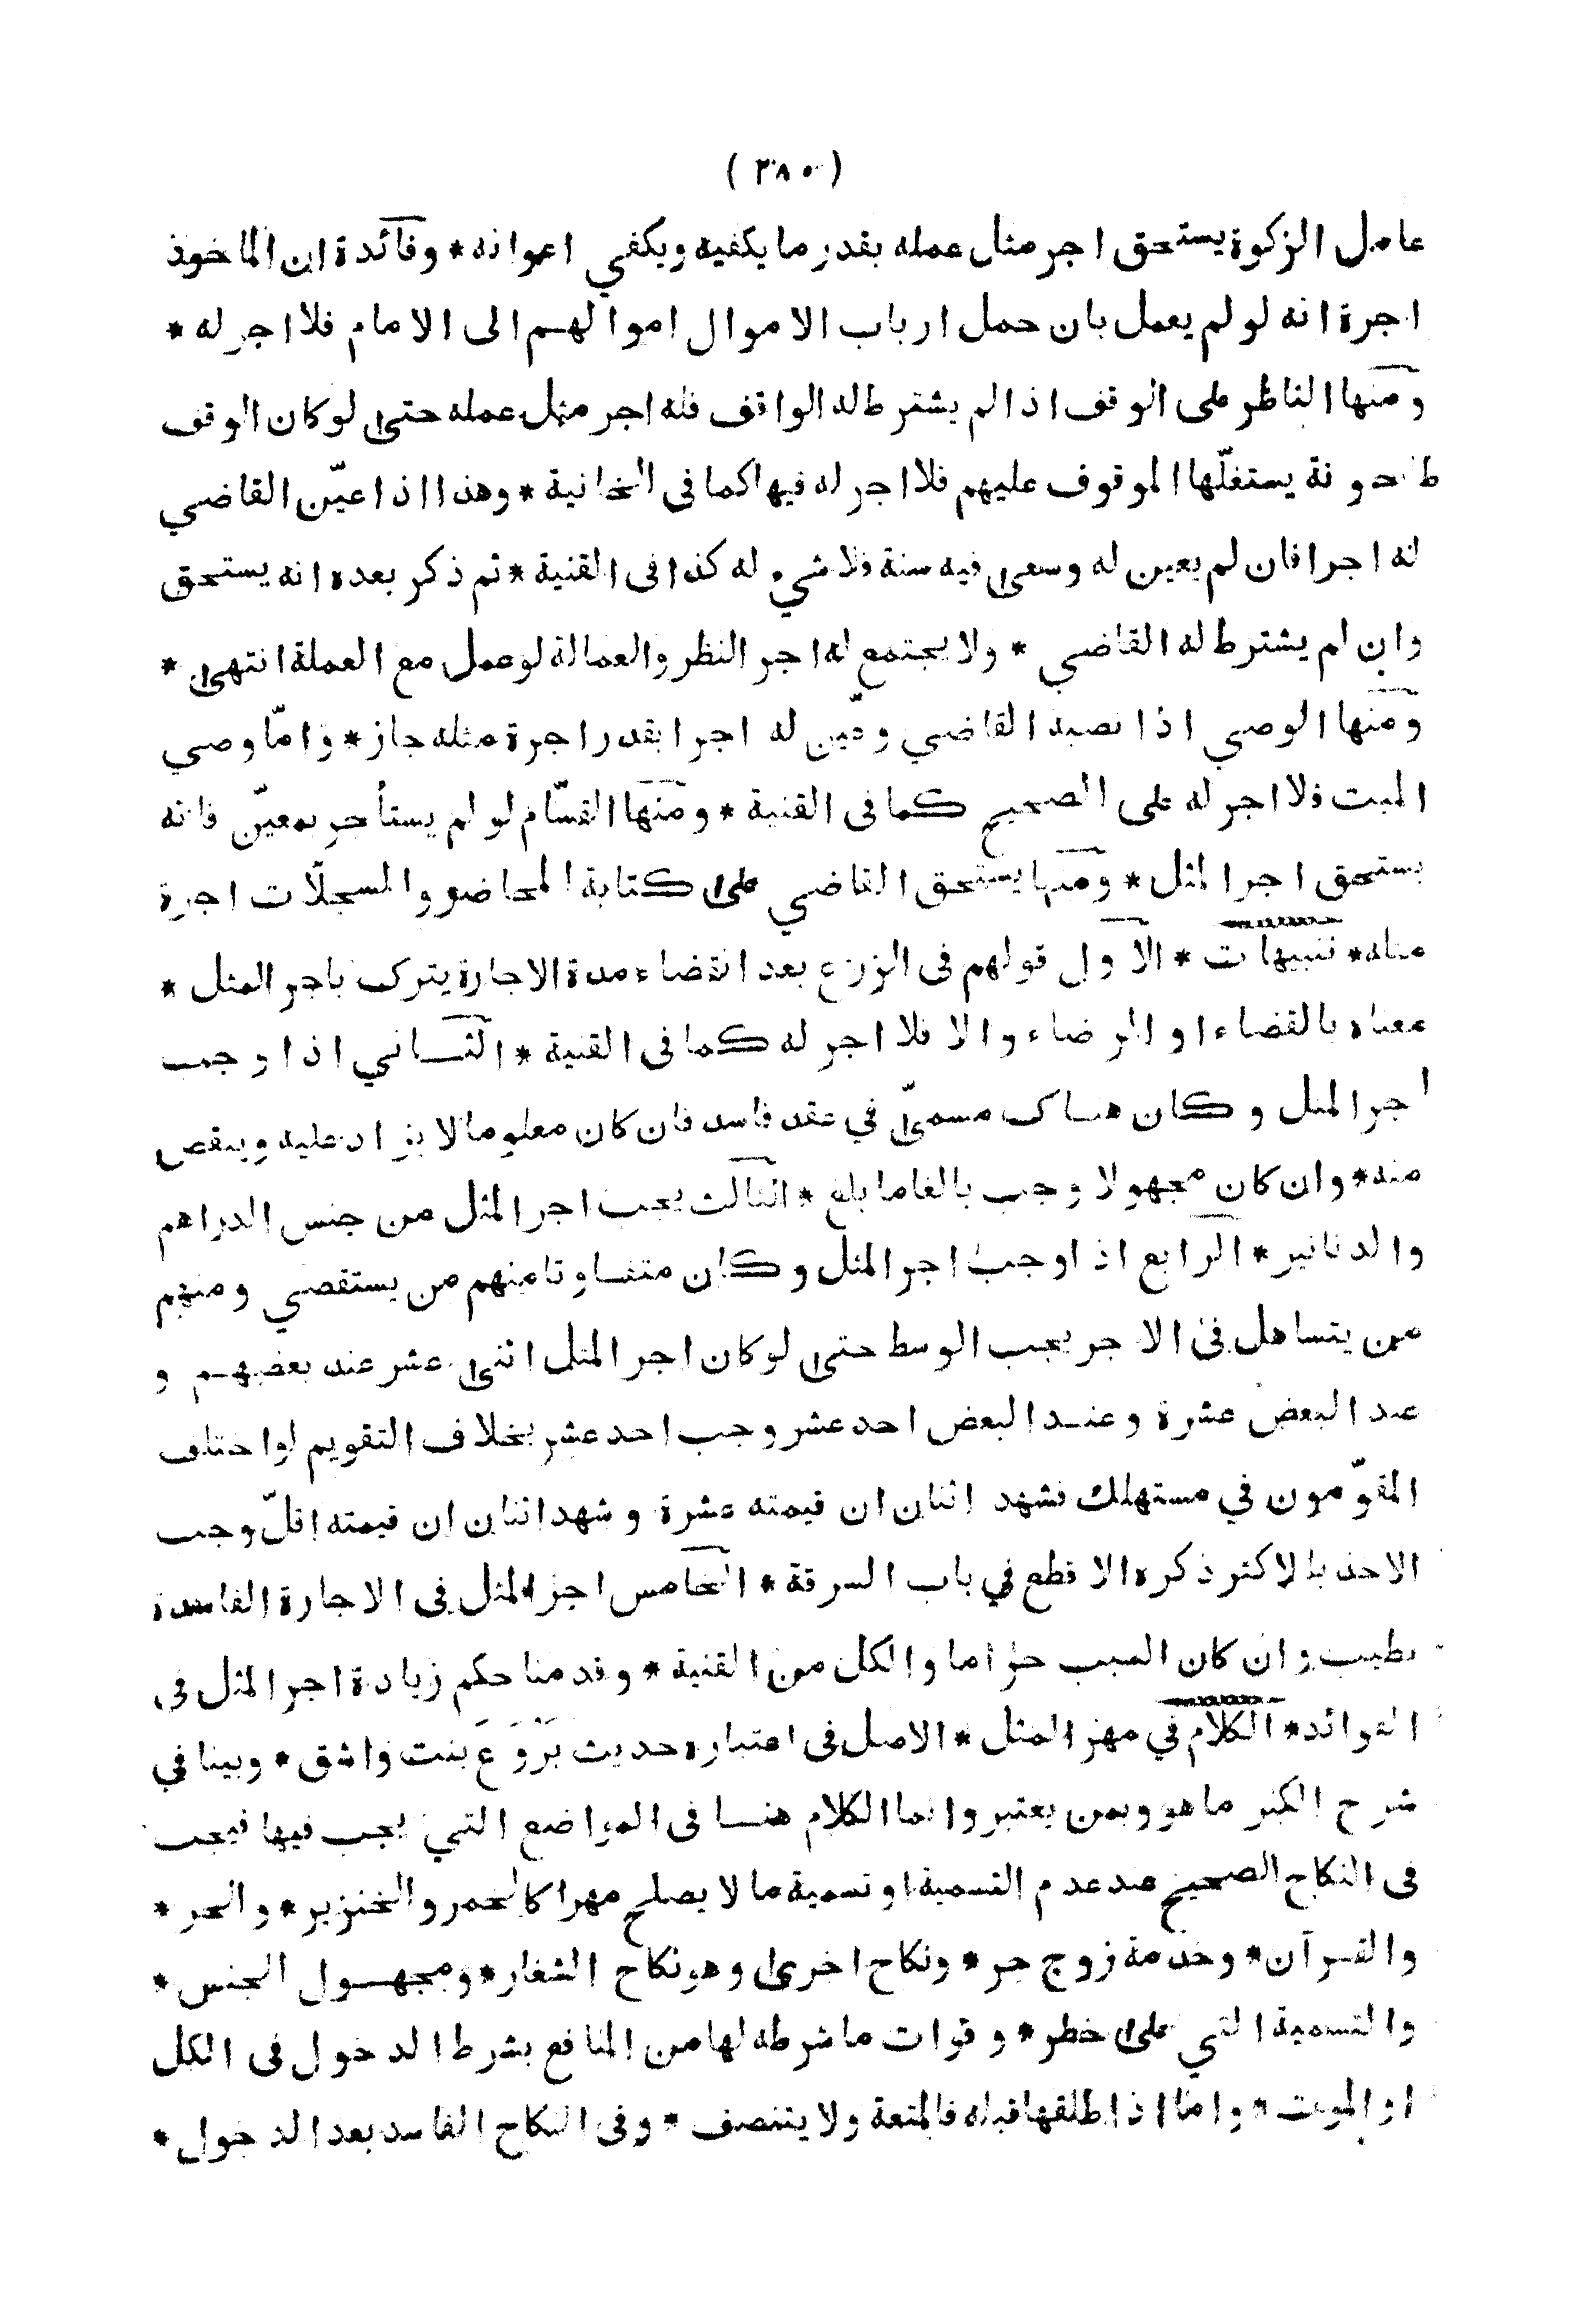 ( ٣٨٠ )
عامل الزكوة يستحق اجر مثل عمله بقدر ما يكفيه ويكفي اعوانه * وفائدة ان الماخوذ
اجرة انه لو لم يعمل بان حمل ارباب الاموال اموالهم الى الامام فلا اجر له *
ومنها الناظر على الوقف اذا لم يشترط له الواقف فله اجر مثل عمله حتى لو كان الوقف
طاحونة يستغلّها الموقوف عليهم فلا اجر له فيها كما فى الخانية * وهذا اذا عيّن القاضي
له اجرا فان لم يعين له وسعى فيه سنة فلا شيء له كذا فى القنية * ثم ذكر بعده انه يستحق
وان لم يشترط له القاضي * ولا يجتمع له اجر النظر والعمالة لو عمل مع العملة انتهى *
ومنها الوصي اذا نصبه القاضي وعيّن له اجرا بقدر اجرة مثله جاز * وامّا وصي
الميت فلا اجر له على الصحيح كما فى القنية * ومنها القسّام لو لم يستأجر بمعيّن فانه
يستحق اجر المثل * ومنها يستحق القاضي على كتابة المحاضر والسجلّات اجرة
مثله * تنبيهات * الاول قولهم فى الزرع بعد انقضاء مدة الاجارة يترك باجر المثل *
معناه بالقضاء او الرضاء والا فلا اجر له كما فى القنية * الثاني اذا وجب
اجر المثل وكان هناك مسمىّ في عقد فاسد فان كان معلوما لا يزاد عليه وينقص
منه * وان كان مجهولا وجب بالغا ما بلغ * الثالث يجب اجر المثل من جنس الدراهم
والدنانير * الرابع اذا وجب اجر المثل وكان متفاوتا منهم من يستقصي ومنهم
من يتساهل فى الاجر يجب الوسط حتى لو كان اجر المثل اثنى عشر عند بعضهم و
عند البعض عشرة وعند البعض احد عشر وجب احد عشر بخلاف التقويم لو اختلف
المقوّمون في مستهلك فشهد اثنان ان قيمته عشرة وشهد اثنان ان قيمته اقلّ وجب
الاخذ بالاكثر ذكره الاقطع في باب السرقة * الخامس اجر المثل فى الاجارة الفاسدة
يطيب وان كان السبب حراما والكل من القنية * وقدمنا حكم زيادة اجر المثل فى
الفوائد * الكلام في مهر المثل * الاصل فى اعتباره حديث بَرْوَعَ بنت واشق * وبينا في
شرح الكنز ما هو وبمن يعتبر وانما الكلام هنا فى المواضع التي يجب فيها فيجب
فى النكاح الصحيح عند عدم التسمية او تسمية ما لا يصلح مهرا كالخمر والخنزير * والحر *
والقرآن * وخدمة زوج حر * ونكاح اخرى وهو نكاح الشغار * ومجهول الجنس *
والتسمية التي على خطر * وفوات ما شرطه لها من المنافع بشرط الدخول فى الكل
او الموت * واما اذا طلقها قبله فالمتعة ولا يتنصف * وفى النكاح الفاسد بعد الدخول *